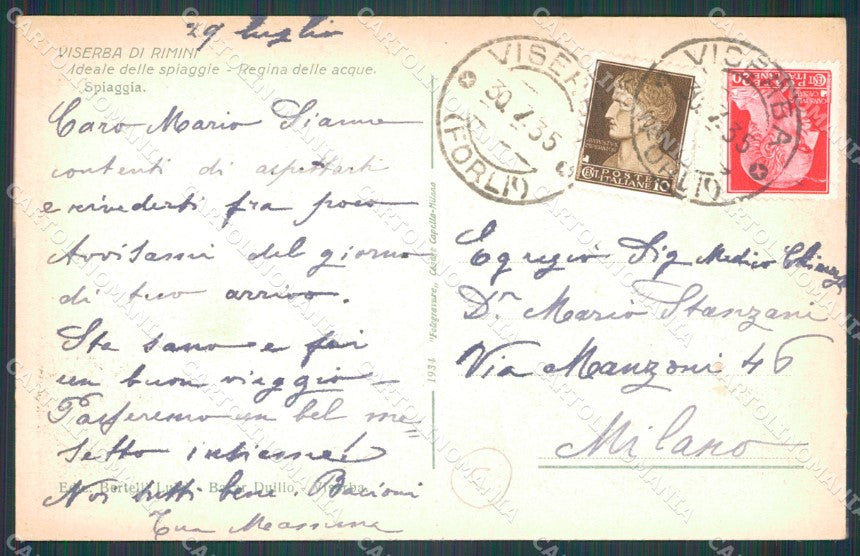 29 luglio
VISERBA DI RIMINI
Ideale delle spiaggie - Regina delle acque.
Spiaggia.
Caro Mario Siamo
contenti di aspettarti
e rivederti fra poco
Avvisami del giorno
di tuo arrivo.
Sta sano e fai
un buon viaggio
Passeremo un bel me
setto insieme!
Ediz. Bertelli Luigi - Bazar Duilio, Viserba
Noi tutti bene. Bacioni
Tua Mamma
1934 "Fotogravure" Cesare Capello-Milano
VISERBA
30.7.35
(FORLI)
POSTE
ITALIANE
CENT 10
VISERBA
30.7.35
(FORLI)
POSTE ITALIANE
CENT 20
Egregio Sig Medico Chirurgo
Dr Mario Stanzani
Via Manzoni 46
Milano
CARTOLINOMANIA